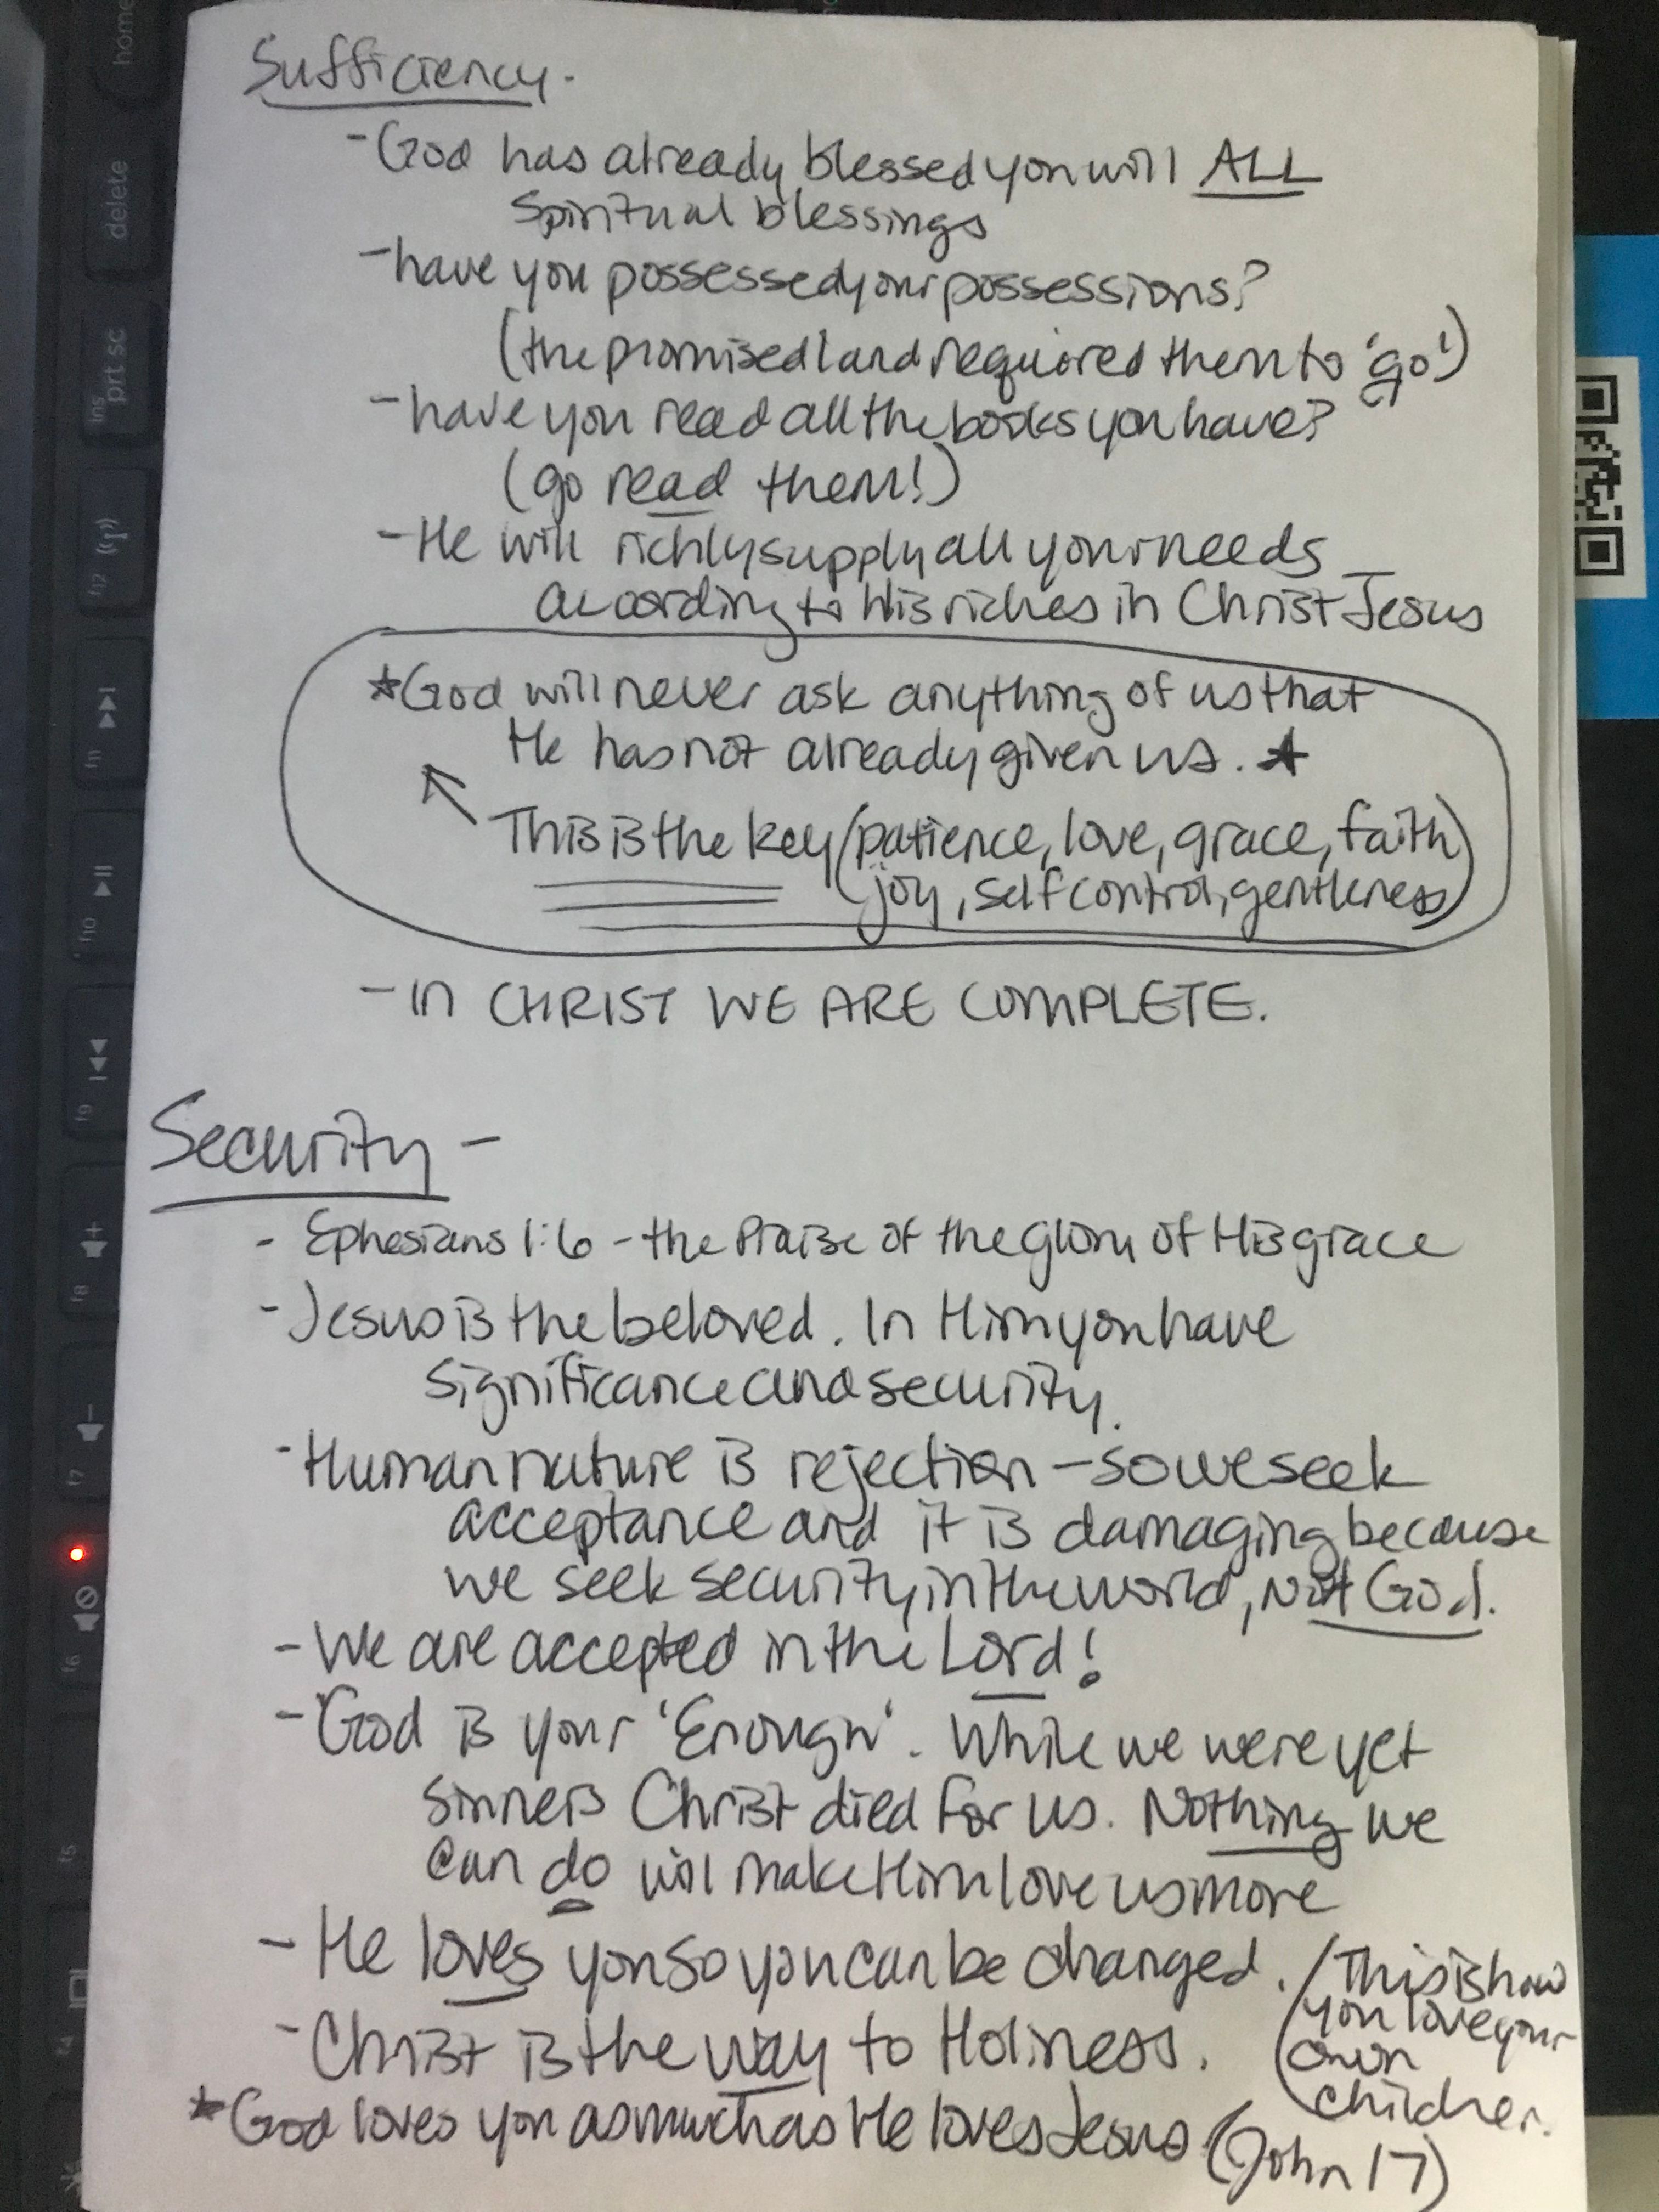 Sufficiency.
- God has already blessed you will ALL
Spiritual blessings
- have you possessed your possessions?
(the promised land required them to 'go')
- have you read all the books you have?
(go read them!)
- He will richly supply all your needs
according to His riches in Christ Jesus
★ God will never ask anything of us that
He has not already given us. ★
This is the key (patience, love, grace, faith
joy, self control, gentleness)
- IN CHRIST WE ARE COMPLETE.
Security -
- Ephesians 1:6 - the Praise of the glory of His grace
- Jesus is the beloved. In Him you have
significance and security.
- Human nature is rejection - so we seek
acceptance and it is damaging because
we seek security in the world, Not God.
- We are accepted in the Lord!
- God is your 'Enough'. While we were yet
sinners Christ died for us. Nothing we
can do will make Him love us more
- He loves you so you can be changed.
(This is how
you love your
own
children.
- Christ is the way to Holiness.
★ God loves you as much as He loves Jesus (John 17)
home
delete
prt sc
ins
f12
f11
f10
f9
f8
f7
f6
f5
f4